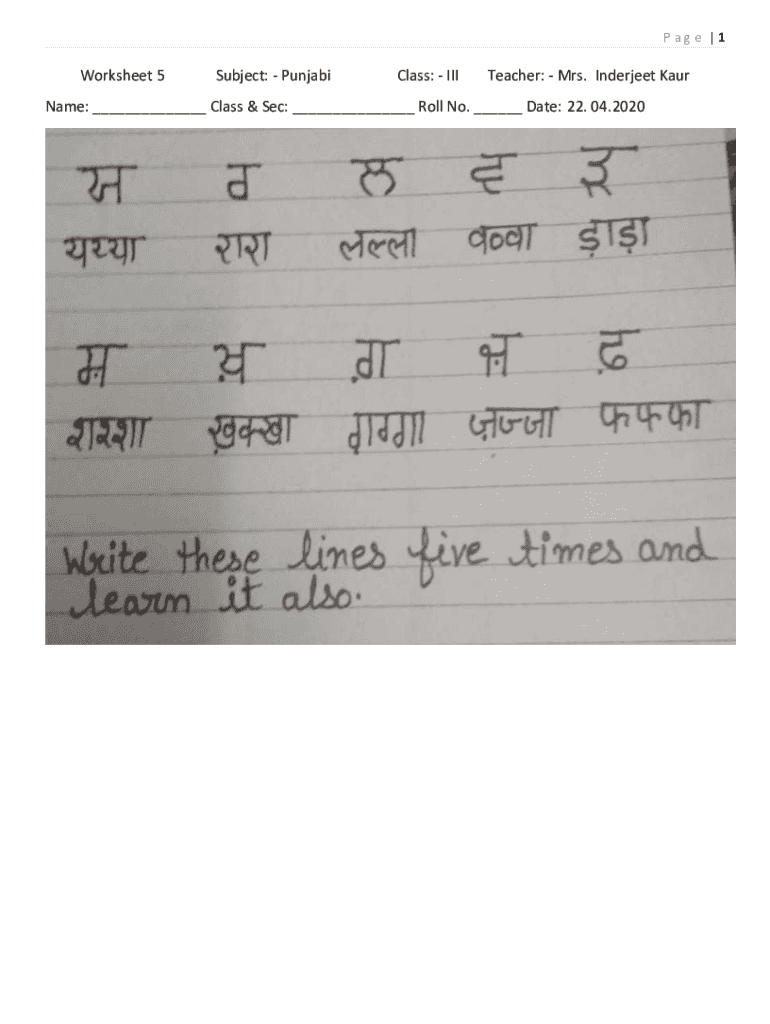 Page | 1
Worksheet 5 Subject: - Punjabi Class: - III Teacher: - Mrs. Inderjeet Kaur
Name: ______________ Class & Sec: _______________ Roll No. ______ Date: 22. 04.2020
ਯ ਰ ਲ ਵ ੜ
यय्या रारा लल्ला वव्वा ड़ाड़ा
ਸ਼ ਖ਼ ਗ਼ ਜ਼ ਫ਼
शश्शा ख़क्खा ग़ग्गा ज़ज्जा फफ्फा
Write these lines five times and
learn it also.